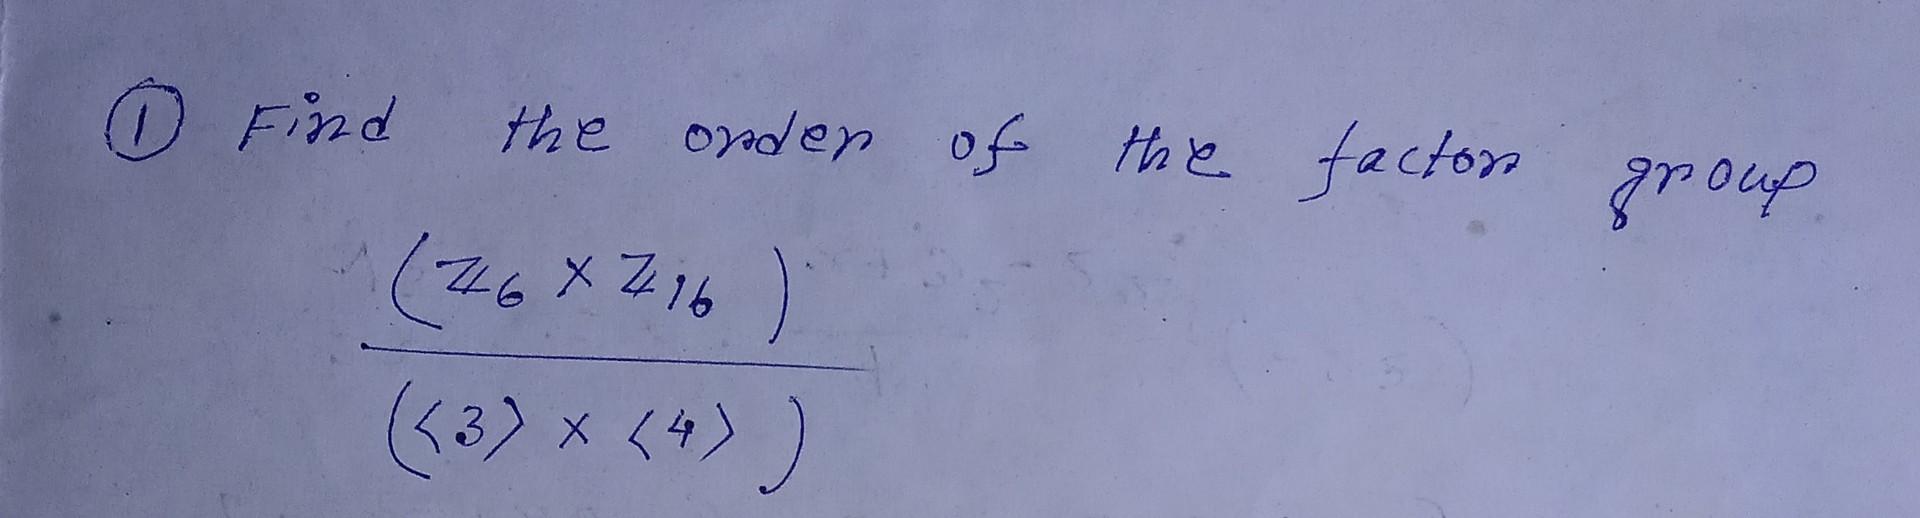 ① Find the order of the factor group
(Z₆ × Z₁₆)
(⟨3⟩ × ⟨4⟩)